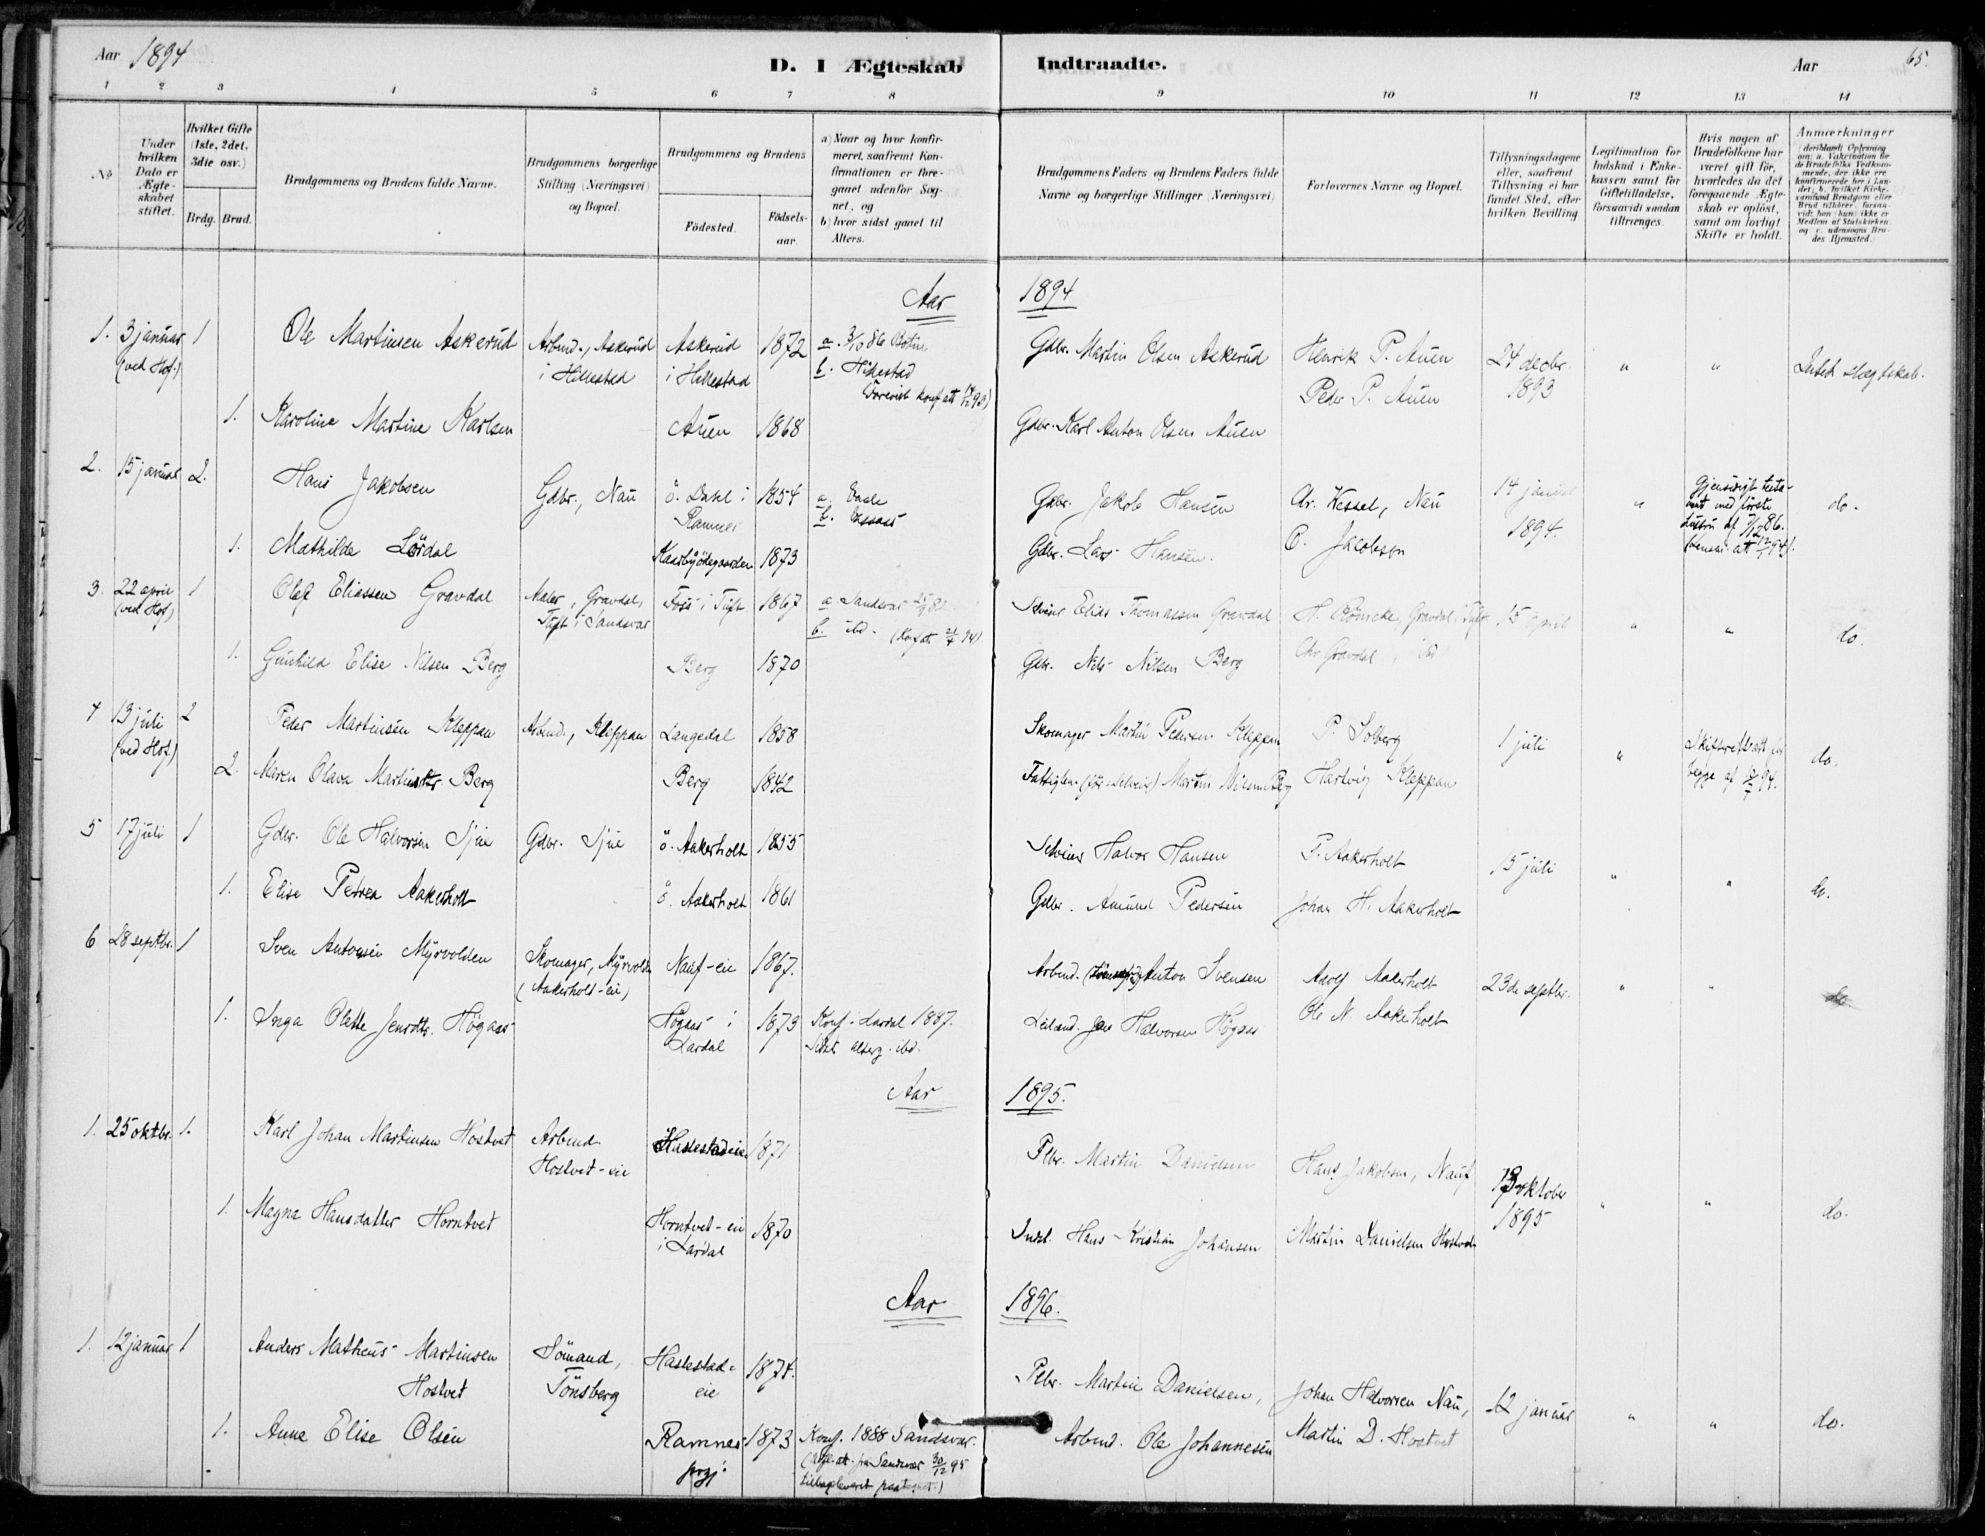 Aar 1894
D. I Ægteskab Indtraadte.
Aar
65.
1 2 3 4 5 6 7 8 9 10 11 12 13 14
No
Under hvilken Dato er Ægteskabet stiftet.
Hvilket Gifte (1ste, 2det, 3die osv.)
Brdg. Brud.
Brudgommens og Brudens fulde Navne.
Brudgommens borgerlige Stilling (Næringsvei) og Bopæl.
Brudgommens og Brudens
Fødested.
Fødselsaar.
a) Naar og hvor konfirmeret, saafremt Konfirmationen er foregaaet udenfor Sognet, og
b) hvor sidst gaaet til Alters.
Brudgommens Faders og Brudens Faders fulde Navne og borgerlige Stillinger (Næringsvei).
Forlovernes Navne og Bopæl.
Tillysningsdagene eller, saafremt Tillysning ei har fundet Sted, efter hvilken Bevilling.
Legitimation for Indskud i Enkekassen samt for Giftetilladelse, forsaavidt saadan tiltrænges.
Hvis nogen af Brudefolkene har været gift før, hvorledes da det foregaaende Ægteskab er opløst, samt om lovligt Skifte er holdt.
Anmærkninger
Aar 1894
1. 3 januar (ved Hof.) 1 Ole Martinsen Askerud Arbmd., Askerud i Hillestad Askerud i Hillestad 1872 a. 3/10 86 Botne b. Hillestad Gdbr. Martin Olsen Askerud Henrik P. Auen Peder P. Auen 24 decbr. 1893 " " Intet slægtskab.
1. Karoline Martine Karlsen Auen 1868 Gdbr. Karl Anton Olsen Auen
2. 15 januar 2. Hans Jakobsen Gdbr., Nau ö. Dahl i Ramnes 1854 a. b. Gdbr. Jakob Hansen Ar. Kessel, Nau C. Jacobsen 14 januar 1894. " do.
1. Mathilde Lørdal 1873 Gdbr. Lars Hansen.
3. 22 april (ved Hof) 1 Olaf Eliassen Gravdal Maler, Gravdal, Tuft i Sandsvær Foss i Tuft 1867 a Sandsvær b. ibd. Elias Thomassen Gravdal H. Gravdal Chr Gravdal, ibd 15 april " " do.
1. Gunhild Elise Nilsen Berg Berg 1870 Gdbr. Nils Nilsen Berg
4 13 juli (ved Hof.) 2 Peder Martinsen Kleppan Arbmd., Kleppan Langedal 1858 Skomager Martin Pedersen Kleppan P. Solberg Hartvig Kleppan 1 juli " begge af do.
2. Maren Olava Martinsdtr. Berg Berg 1842 Martin Nilsen Berg
5 17 juli 1 Gdbr. Ole Halvorsen Sjue Gdbr. Sjue ö. Aakerholt 1855 Selveier Halvor Hansen P. Aakerholt Johan H. Aakerholt 15 juli " " do.
1. Elise Petrea Aakerholt ö. Aakerholt 1861 Gdbr. Amund Pedersen
6 28 septbr. 1 Sven Antonsen Myrvolden Skomager, Myrvolden (Aakerholt-eie) Nauf-eie 1867. Arbmd. Anton Svensen Adolf Aakerholt Ole N. Aakerholt 23de septbr. " " do
1. Inga Olette Jensdtr. Högaas Högaas i Lardal 1873 Konf. Lardal 1887. Sidst alterg. ibd. Leiland. Jens Halvorsen Högaas
Aar 1895.
1. 25 oktbr. 1. Karl Johan Martinsen Hostvet Arbmd Hostvet-eie Haslestadeie 1871 Plbr. Martin Danielsen Hans Jakobsen, Nauf Martin Danielsen Hostvet 13 oktober 1895 " " do.
1. Magna Hansdatter Horntvet Horntvet-eie i Lardal 1870 Indst. Hans Kristian Johansen
Aar 1896.
1. 12 januar 1 Anders Matheus Martinsen Hostvet Sömand, Tönsberg Haslestad-eie 1874. Plbr. Martin Danielsen, Johan Halvorsen Nau, Martin D. Hostvet 12 januar " " do.
1. Anna Elise Olsen Ramnes prgj. 1873 Konf. 1888 Sandsvær. Arbmd. Ole Johannesen